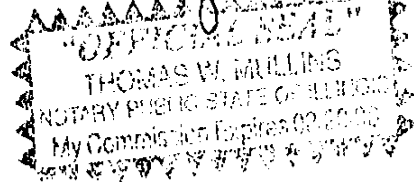 "OFFICIAL SEAL"
THOMAS W. MULLINS
NOTARY PUBLIC STATE OF ILLINOIS
My Commission Expires